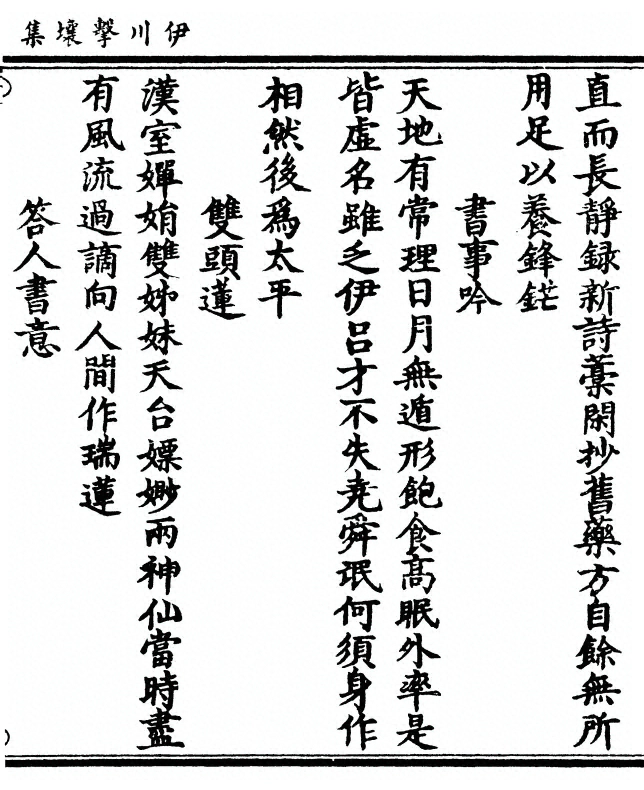 伊川擊壤集
直而長靜録新詩藁閑抄舊藥方自餘無所
用足以養鋒鋩
書事吟
天地有常理日月無遁形飽食髙眠外率是
皆虛名雖乏伊吕才不失堯舜氓何須身作
相然後爲太平
雙頭蓮
漢室嬋娟雙姊妹天台嫖緲兩神仙當時盡
有風流過謫向人間作瑞蓮
答人書意